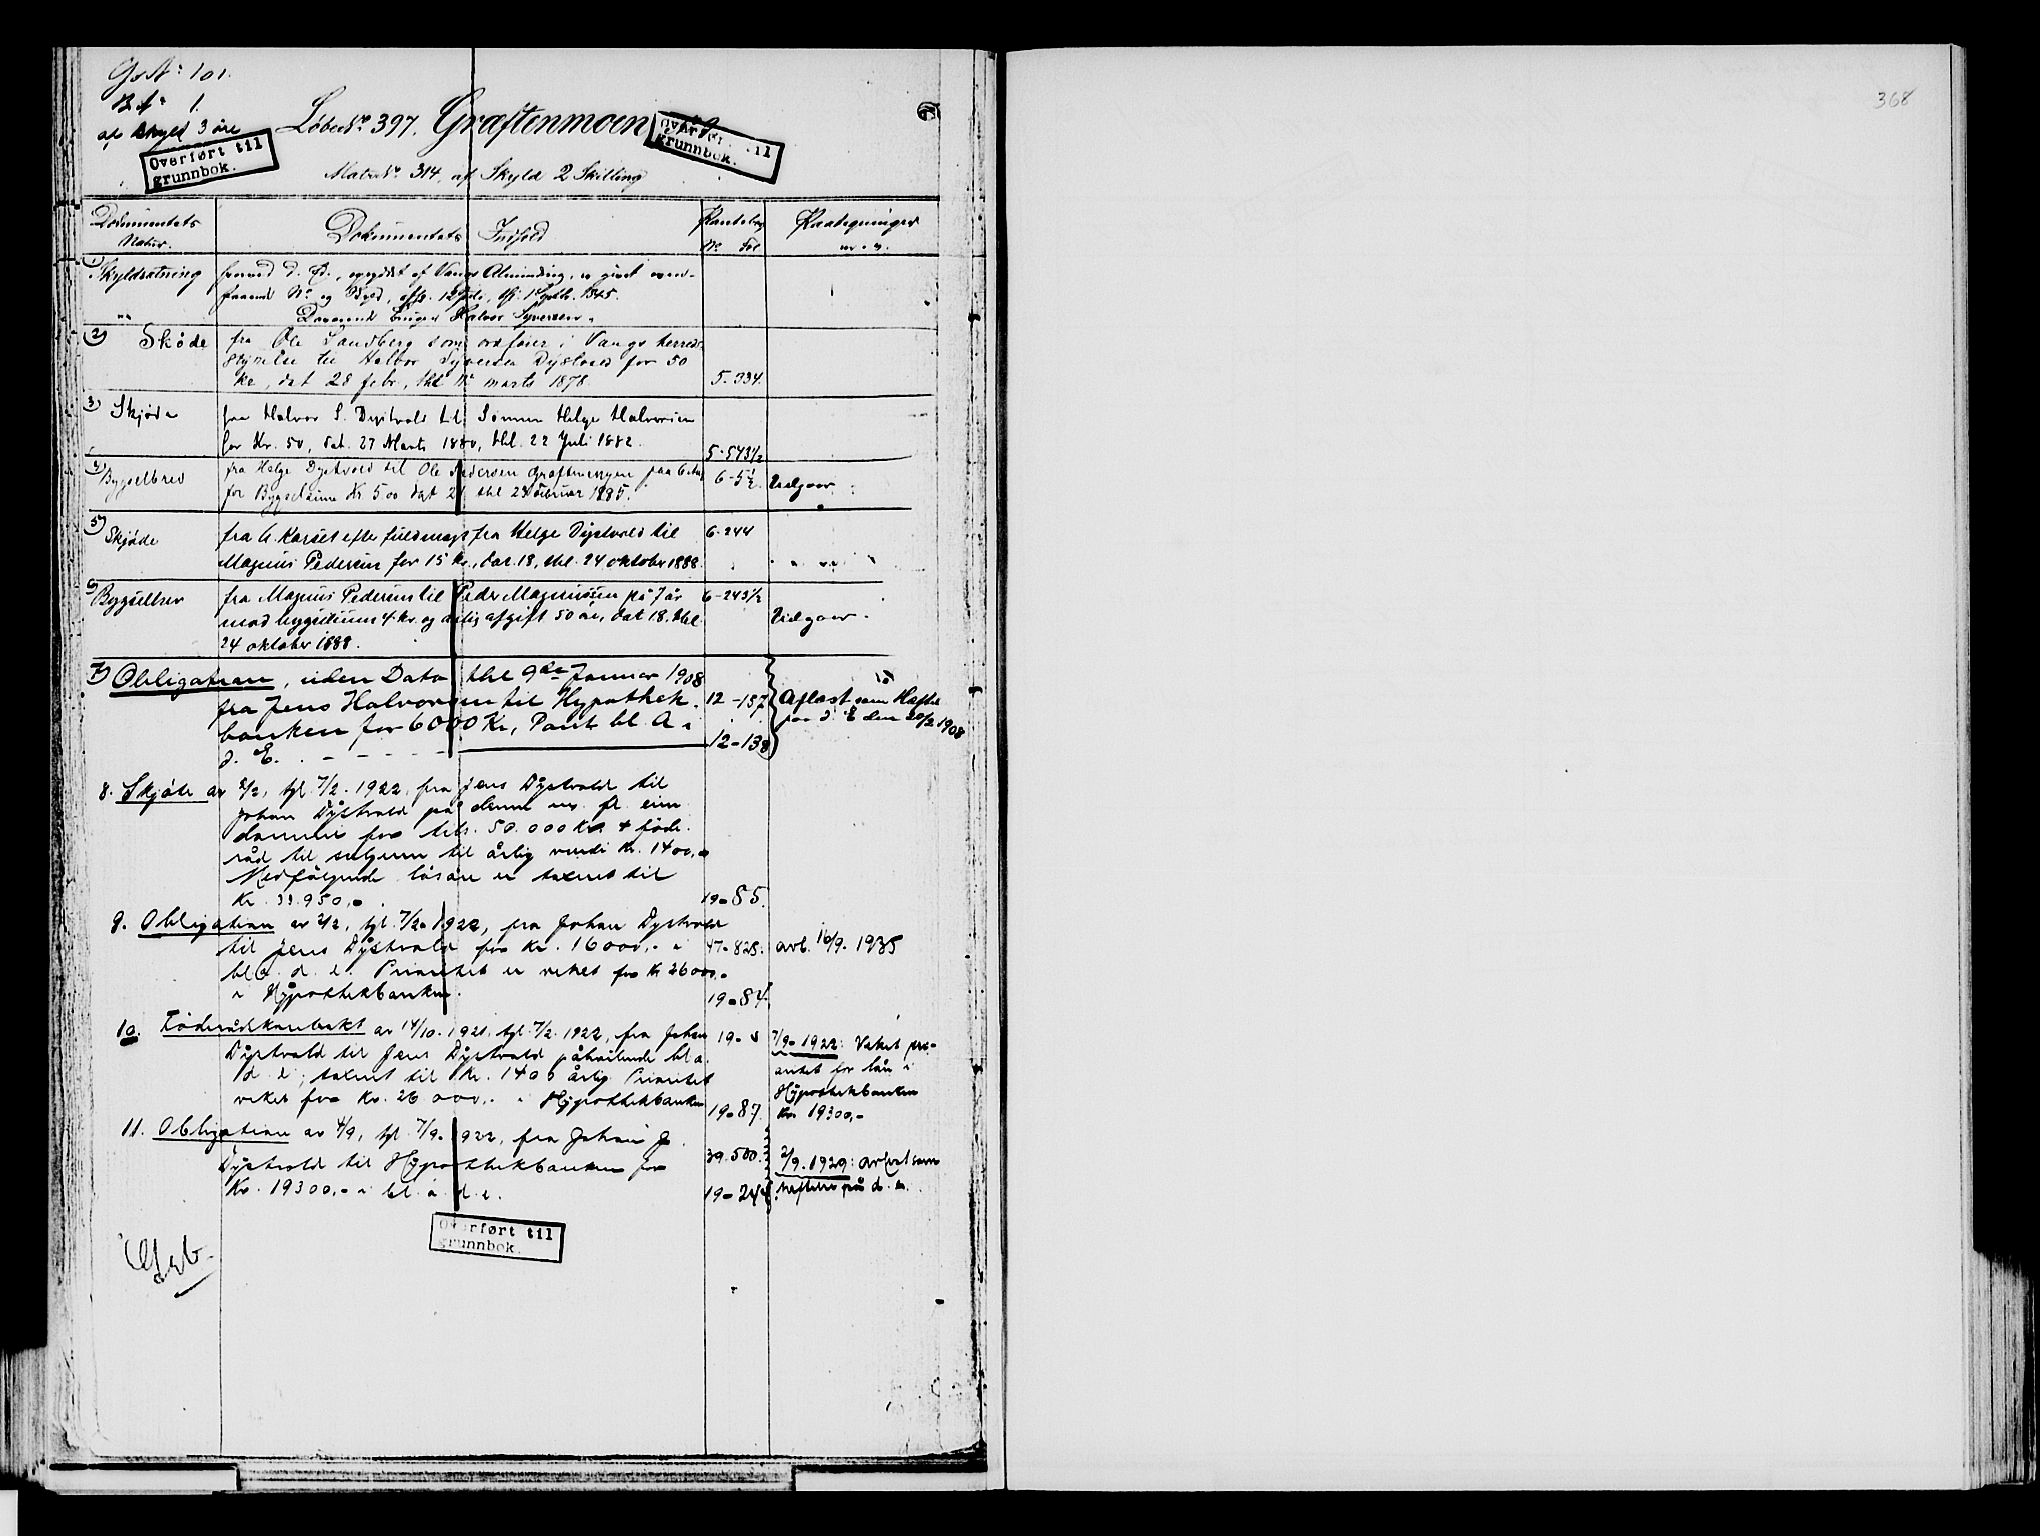 G. Nº 101.
B. Nº 1.
af Skyld 3 øre
Løbe Nº 397. Græftenmoen
Overført til
grunnbok.
Overført til
grunnbok.
Matr. Nº 314, af Skyld 2 Skilling
368
Dokumentets
Natur.
Dokumentets Indhold
Pantebog
Nº Fol
Paategninger
m. v.
1) Skyldsætning
d. E., af Vangs Alminding, er givet
Nº og Skyld, 1845.
Halvor Syversen
2) Skøde
fra Ole Sandberg som ordfører i Vangs herreds-
styrelse til Halvor Syversen Dystvold for 50
kr, dat 28 febr, thl marts 1878.
5-334.
3) Skjøde
fra Halvor S. Dystvold til Sønnen Helge Halvorsen
for Kr. 50, dat. 27 Marts 1880, thl. 22 Juli 1882.
5-543½
4) Bygselbrev
fra Helge Dystvold til Ole Pedersen paa
for Bygselsum Kr 500 dat 21 thl 23 1885.
6-5½
Udgaar
5) Skjøde
fra A. Karset efter fuldmagt fra Helge Dystvold til
Magnus Pedersen for 15 kr, dat. 18, thl. 24 oktober 1888.
6-244
6) Bygselbrev
fra Magnus Pedersen til Peder Magnussen på 7 år
mod bygselsum 4 kr. og årlig afgift 50 øre, dat 18. thl.
24 oktober 1888.
6-243½
Udgaar.
7) Obligation, uden Dato thl 9de Januar 1908
fra Jens Halvorsen til Hypothek-
banken for 6000 Kr, Pant bl. A. i
d. E.
12-137
12-138
Aflæst som Heftelse
paa d. E den 20/2 1908
8. Skjøte av 2/2, tgl. 7/2. 1922, fra Jens Dystvold til
Johan Dystvold på denne m. fl. eien-
domme for tils. 50.000 Kr. + føde-
råd til selgeren til årlig verdi kr. 1400,-
Medfølgende løsøre er taxeret til
Kr. 950,-
19-85.
9. Obligation av 2/2, tgl. 7/2-1922, fra Johan Dystvold
til Jens Dystvold for kr. 16000,- i
bl.a. d. e. Prioritet er veket for Kr 26000,-
i Hypothekbanken.
47-825.
19-84.
avl. 16/9. 1935
10. Føderådskontrakt av 14/10. 1921, tgl. 7/2. 1922, fra Johan
Dystvold til Jens Dystvold påhvilende bl.a.
d. e.; taxeret til Kr. 1400 årlig. Prioritet
veket for Kr. 26000,- i Hypothekbanken
19-87.
7/9-1922: Veket pri-
oritet for lån i
Hypothekbanken
Kr. 19300,-
11. Obligation av 4/9, tgl. 7/9-1922, fra Johan J.
Dystvold til Hypothekbanken for
Kr. 19300,- i bl. a. d. e.
39.500.
19-244
2/9. 1929: avlest som
heftelse på d. e.
Overført til
grunnbok.